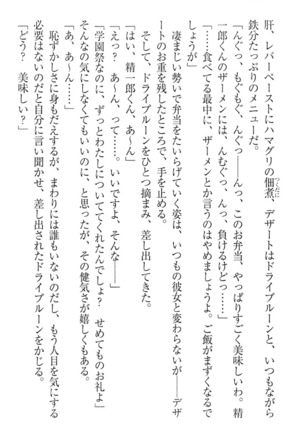 肝、レバーペーストにハマグリの佃煮、デザートはドライプルーンと、いつもながら
鉄分たっぷりのメニューだ。
「んぐっ、もぐもぐ、んぐっ――んっ、このお弁当、やっぱりすごく美味しいわ。精
一郎くんのザーメンには、んむぐっ、んっ、負けるけどっ――」
「……食べてる最中に、ザーメンとか言うのはやめましょうよ。ご飯がまずくなるで
しょうが」
凄まじい勢いで弁当をたいらげていく姿は、いつもの彼女と変わらないが――デザ
ートのお重を残したところで、手を止める。
そして、ドライプルーンをひとつ摘まみ、差し出してきた。
「はい、精一郎くん、あ～ん」
「えっ？　あ～ん、って……。いいですよ、そんな――」
「学園祭なのに、ずっとわたしについててくれたんでしょ？　せめてものお礼よ」
そんなの気にしなくてもいいのに、と思ったが、その健気さが嬉しくもある。
「あ、あ～ん……」
恥ずかしさに身もだえするが、まわりには誰もいないのだし、もう人目を気にする
必要はないのだと自分に言い聞かせ、差し出されたドライプルーンをかじる。
「どう？　美味しい？」